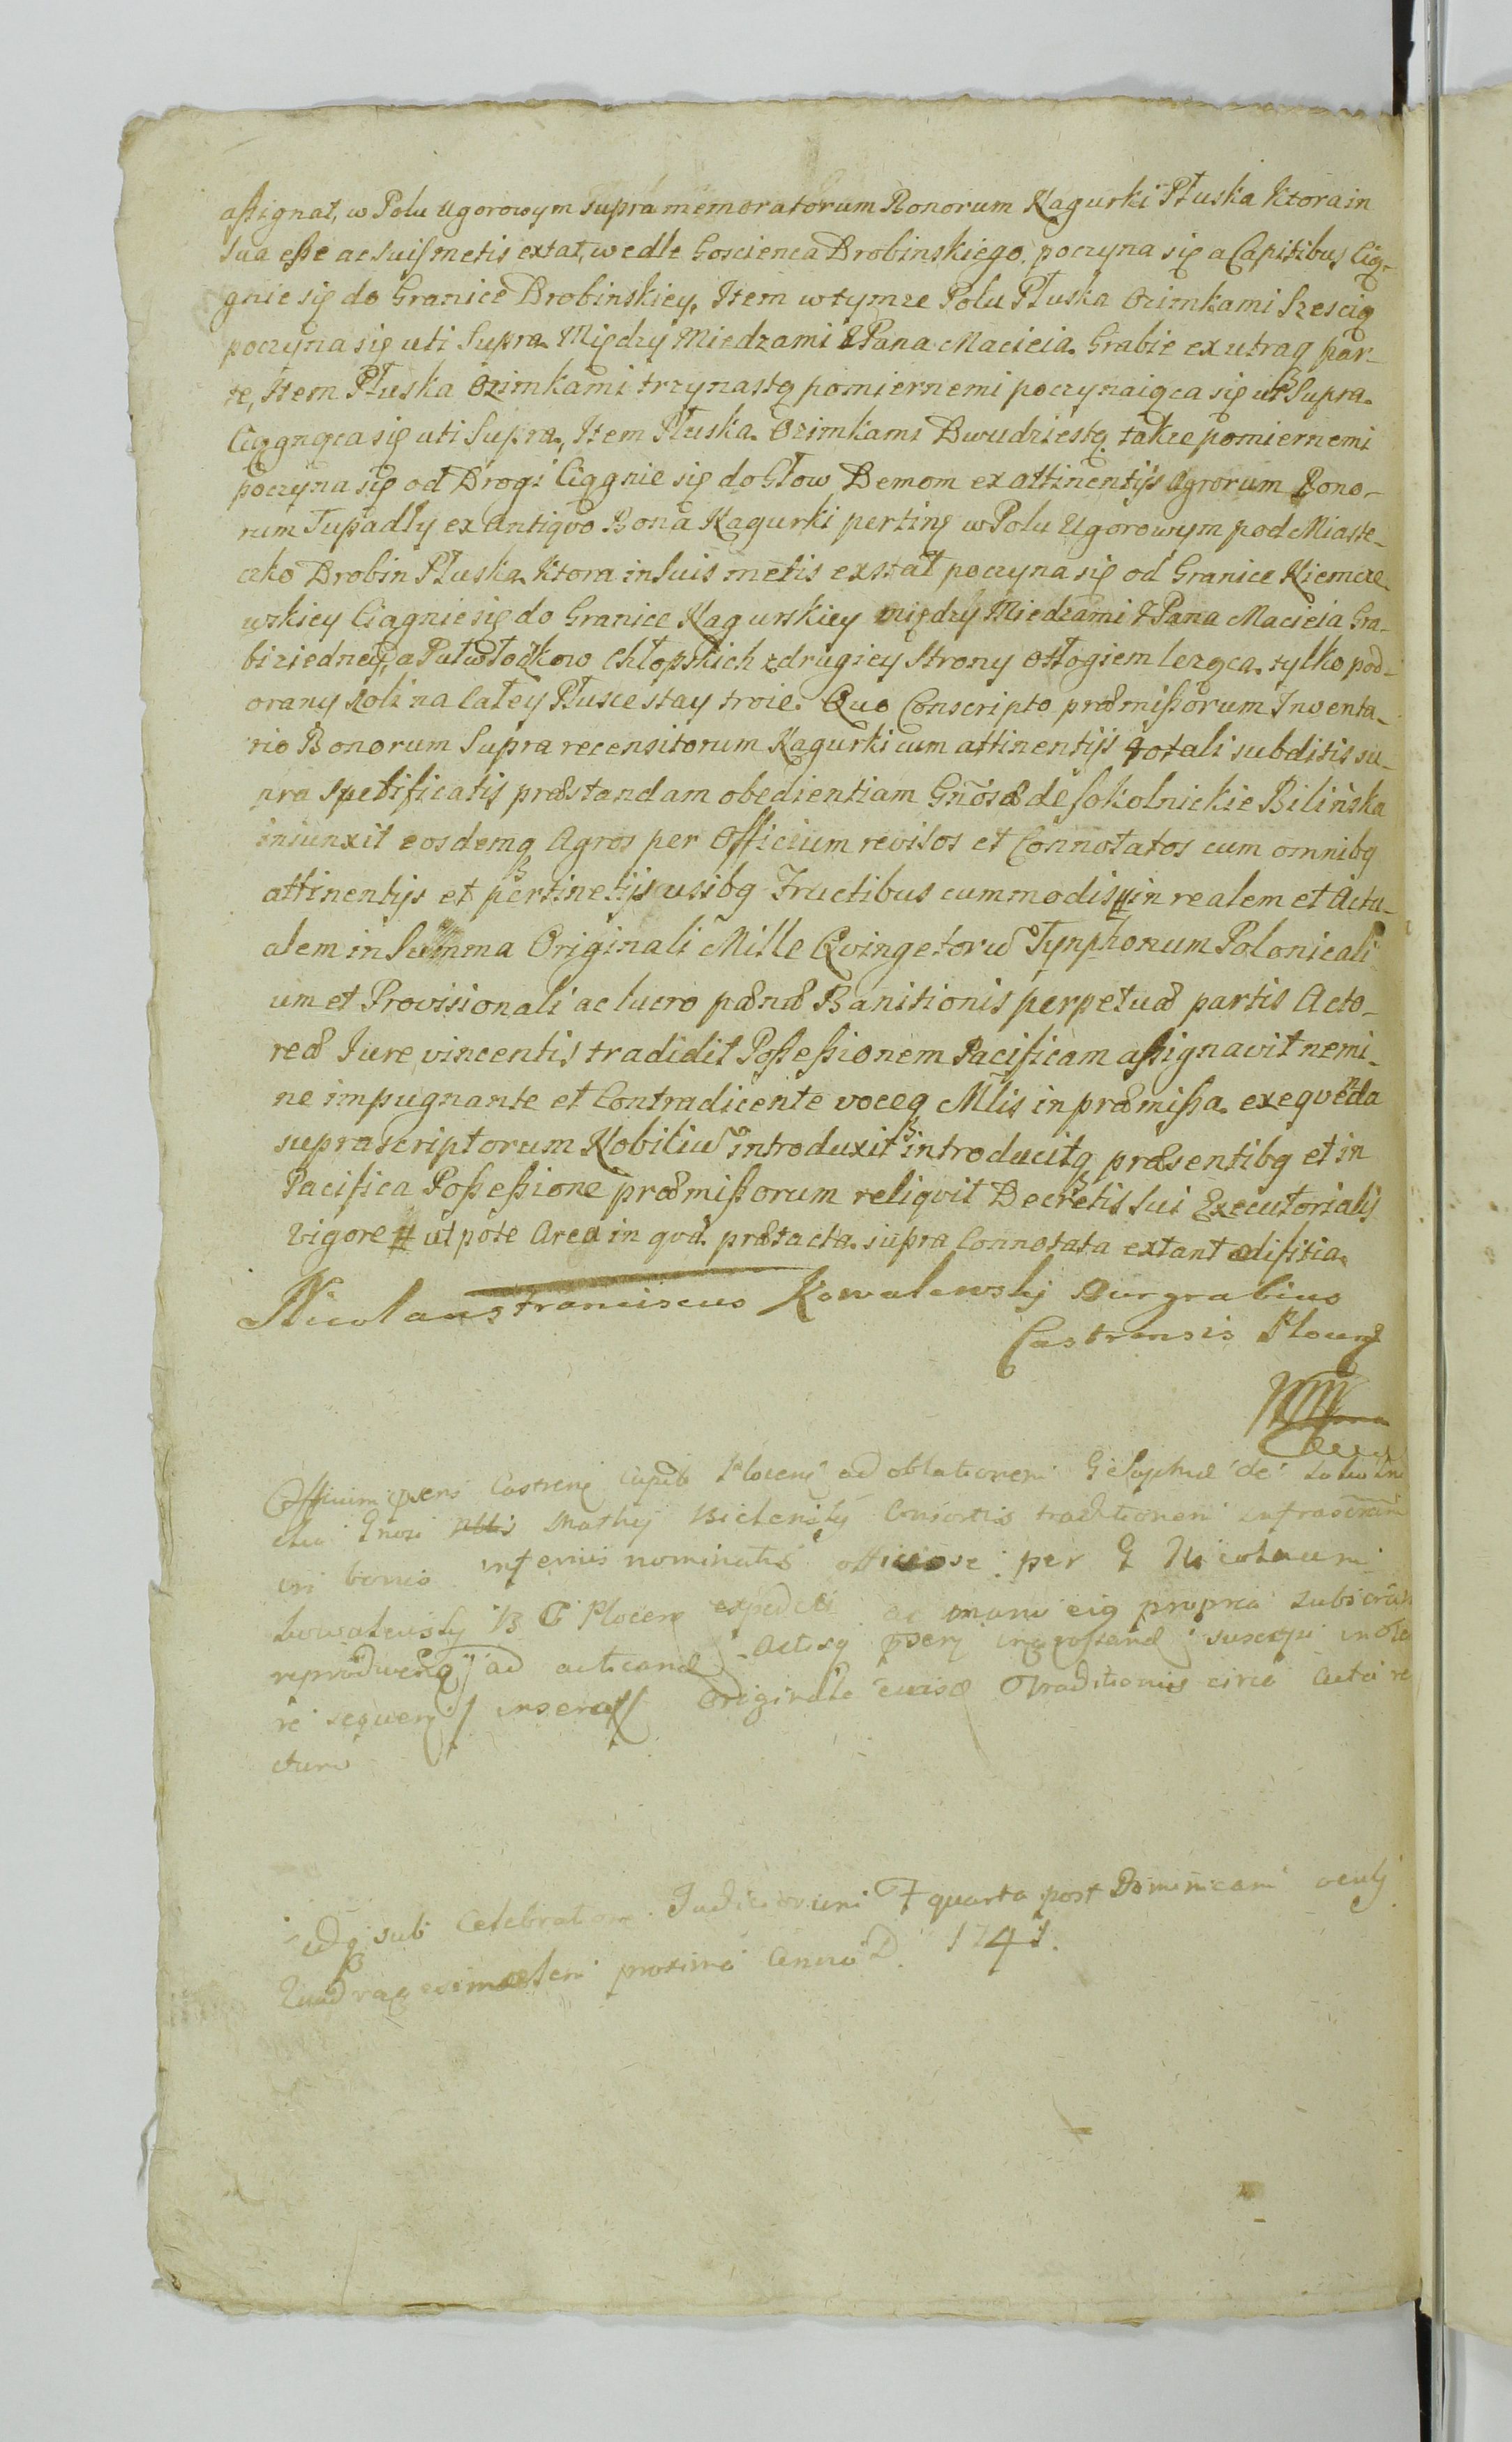 aßignat, w Polu Ugorowym supra memoratorum Bonorum Kagurki Płuska Ktora in
sua eße ac suis metis extat, wedle Goscienca Drobinskiego. poczyna się a Capitibus Cią-
gnie się do Granice Drobinskiey, Item w tymze Polu Płuska Ozimkami Szescią
poczyna się uti Supra. Między Miedzami JPana Macieia Grabie ex utraq par-
te, Item Płuska Ozimkami trzynastą pomiernemi poczynaiąca się ut Supra.
Ciągnąca się uti Supra, Item Płuska Ozimkami Dwudziestą takze pomiernemi
poczyna się od Drogi Ciągnie się do Głow Demom ex attinentijs Agrorum Bono-
rum Tupadły ex Antiqvo Bona Kagurki pertinę w Polu Ugorowym pod Miaste-
czko Drobin Płuska Ktora in suis metis exstat poczyna się od Granice Niemcze-
wskiey Ciągnie się do Granice Kagurskiey między Miedzami JPana Macieia Gra-
bi ziedney, a Putwłoczkow Chłopskich z drugiey Strony ostogiem leząca. tylko pod-
orany Roli na całey Płusce stay troie. Quo Conscripto præmißorum Inventa-
rio Bonorum Supra recensitorum Kagurki cum attinentijs totali subditis su-
pra spetificatis præstandam obedientiam Gnosæ de Sokolnickie Bilinska
iniunxit eosdemq Agros per Officium revisos et Connotatos cum omnibq
attinentijs et pertinetijs usibq Fructibus cummodis in realem et Actu-
alem in Summa Originali Mille Qvingetoru Tynphonum Polonicali
um et Provisionali ac lucro pænæ Banitionis perpetuæ partis Acto-
reæ Iure vincentis tradidit Poßeßionem Pacificam aßignavit nemi-
ne impugnante et Contradicente voceq Mlis in præmißa exeqvenda
suprascriptorum Nobiliu introduxit introducitq præsentibq et in
Pacifica Poßeßione præmißorum reliqvit Decretis sui Executorialis
vigore ut pote Area in qva prætacta supra Connotata extant ædifitia.
Nicolaus Franciscus Kowalewskj Burgrabius
Castrensis Plocenę
Officium psens Castrenę Capitle Plocenę ad oblationem G de
Gnosi Mathij Bielenskij Consortis traditionem infrascram
in bonis inferius nominatis officiose per G Nicolaum
Kowalewskj B C Plocenę expediti ac manu eiq propria subscram
reproducenę ad acticand Actisq psenę ingroßand suscepi
re sequenę inseraß Originale Traditionis circa acta re
ctum
sub Celebratione Iudiciorum F quarta post Dominicam oculj
Quadragesimalem proximo Anno D. 1741.